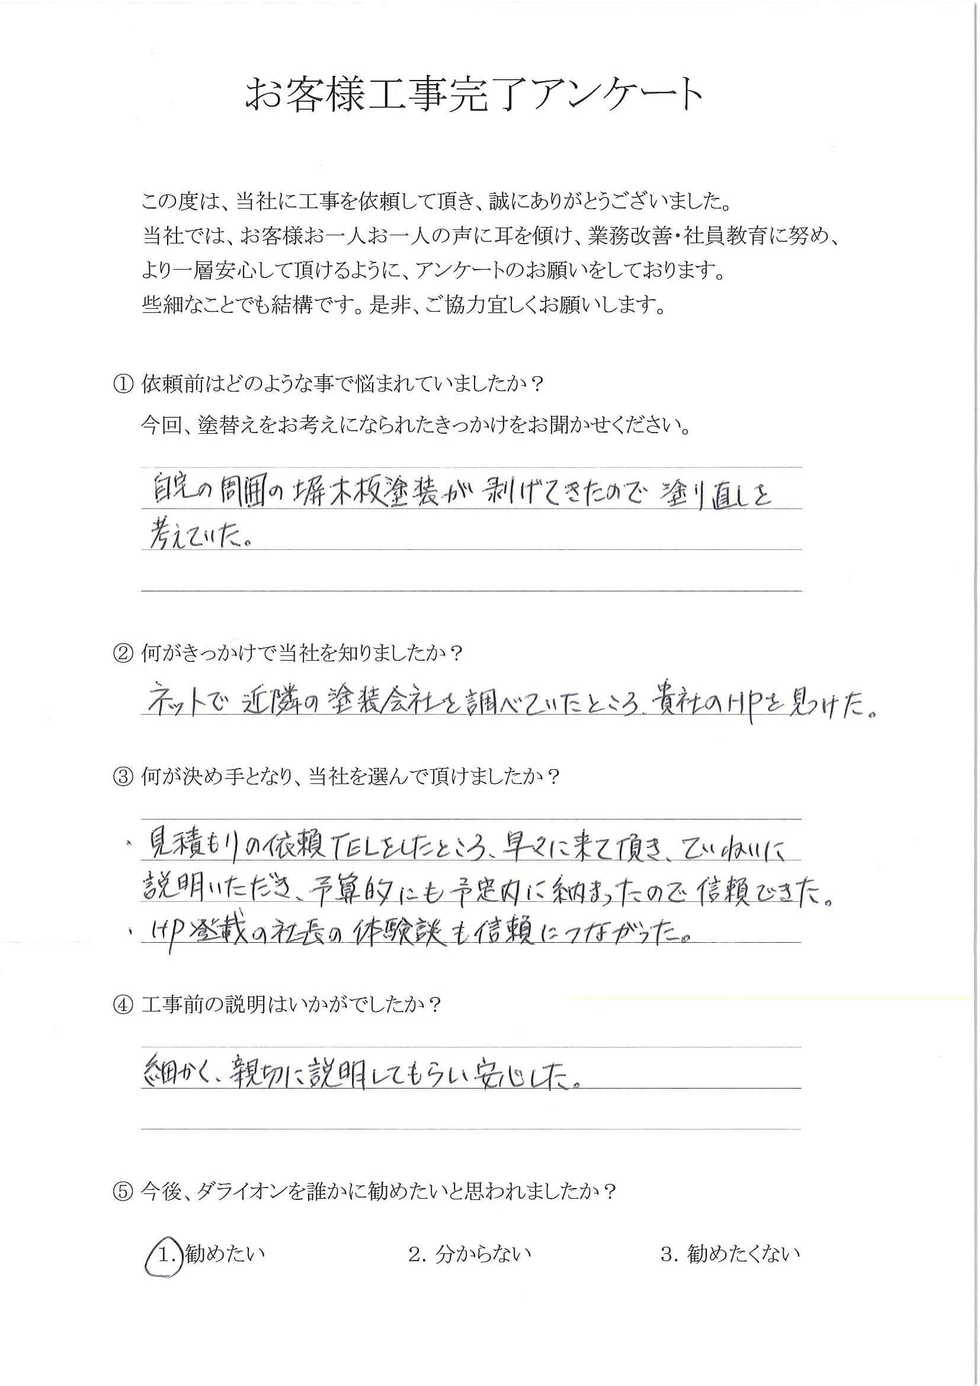 お客様工事完了アンケート
この度は、当社に工事を依頼して頂き、誠にありがとうございました。
当社では、お客様お一人お一人の声に耳を傾け、業務改善・社員教育に努め、
より一層安心して頂けるように、アンケートのお願いをしております。
些細なことでも結構です。是非、ご協力宜しくお願いします。
① 依頼前はどのような事で悩まれていましたか？
今回、塗替えをお考えになられたきっかけをお聞かせください。
自宅の周囲の塀木板塗装が剥げてきたので塗り直しを
考えていた。
② 何がきっかけで当社を知りましたか？
ネットで近隣の塗装会社を調べていたところ、貴社のHPを見つけた。
③ 何が決め手となり、当社を選んで頂けましたか？
・見積もりの依頼TELをしたところ、早々に来て頂き、ていねいに
説明いただき、予算的にも予定内に納まったので信頼できた。
・HP登載の社長の体験談も信頼につながった。
④ 工事前の説明はいかがでしたか？
細かく、親切に説明してもらい安心した。
⑤ 今後、ダライオンを誰かに勧めたいと思われましたか？
1. 勧めたい 2. 分からない 3. 勧めたくない